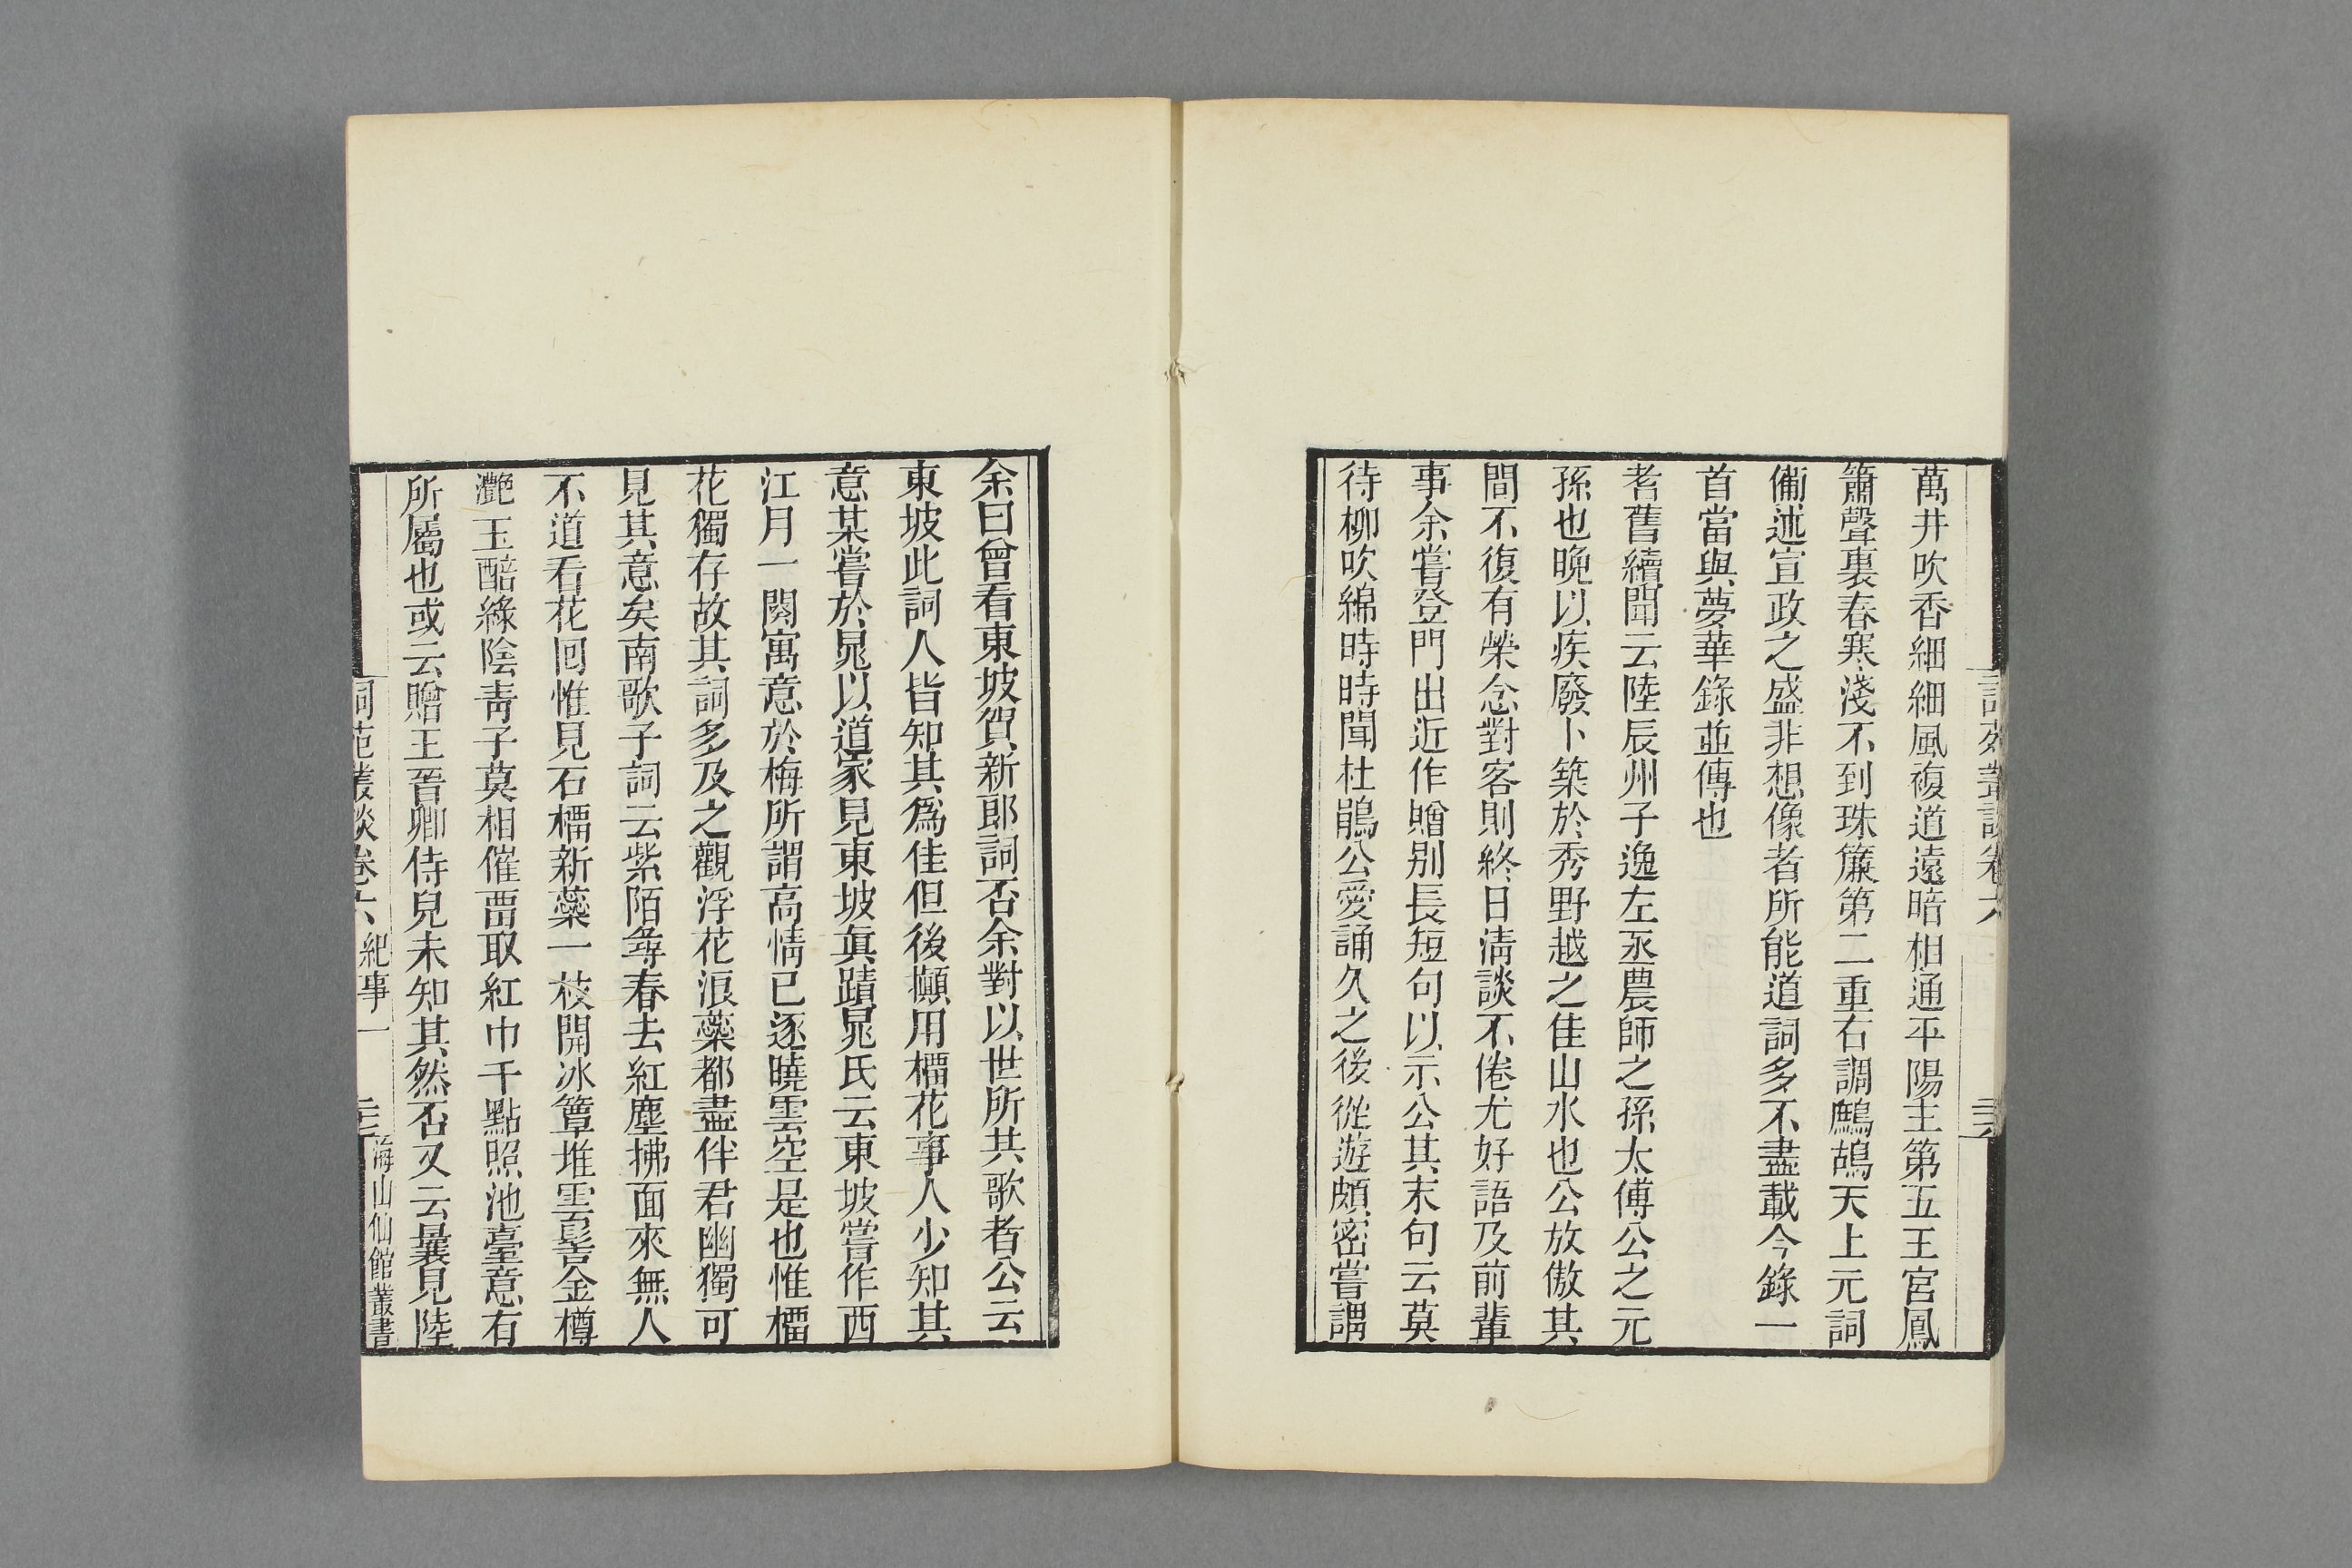 詞苑叢談卷六
萬井吹香細細風複道遠暗相通平陽主第五王宮鳳
簫聲裏春寒淺不到珠簾第二重右調鷓鴣天上元詞
備述宣政之盛非想像者所能道詞多不盡載今錄一
首當與夢華錄並傳也
耆舊續聞云陸辰州子逸左丞農師之孫太傅公之元
孫也晚以疾廢卜築於秀野越之佳山水也公放傲其
間不復有榮念對客則終日清談不倦尤好語及前輩
事余嘗登門出近作贈別長短句以示公其末句云莫
待柳吹綿時時聞杜鵑公愛誦久之後從遊頗密嘗謂
余曰曾看東坡賀新郎詞否余對以世所共歌者公云
東坡此詞人皆知其爲佳但後攧用橊花事人少知其
意某嘗於晁以道家見東坡眞蹟晁氏云東坡嘗作西
江月一闋寓意於梅所謂高情已逐曉雲空是也惟橊
花獨存故其詞多及之觀浮花浪蘂都盡伴君幽獨可
見其意矣南歌子詞云紫陌尋春去紅塵拂面來無人
不道看花回惟見石橊新蘂一枝開冰簟堆雲髻金樽
灔玉醅綠陰青子莫相催畱取紅巾千點照池臺意有
所屬也或云贈王晉卿侍兒未知其然否又云曩見陸
詞苑叢談卷六 紀事一
海山仙館叢書